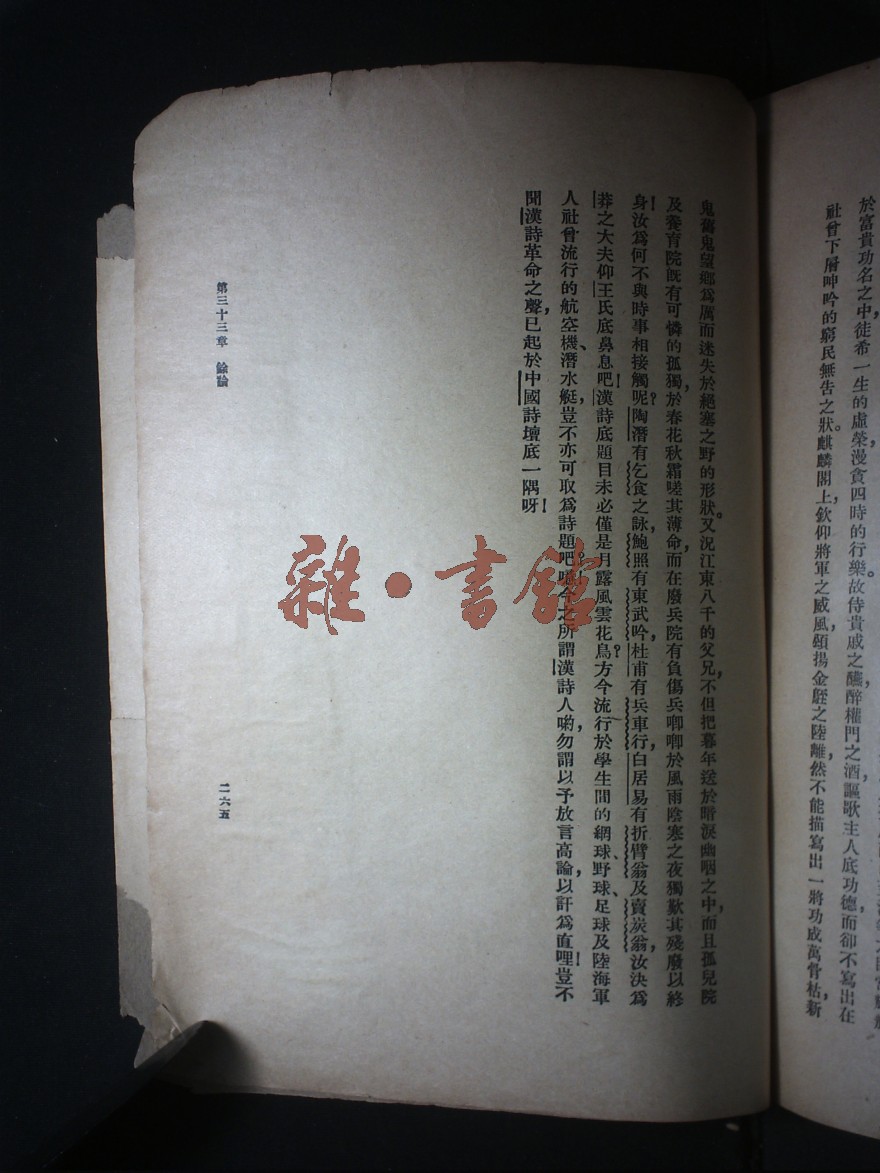 於富貴功名之中，徒希一生的虛榮，漫貪四時的行樂。故侍貴戚之醼，醉權門之酒，謳歌主人底功德，而卻不寫出在
社會下層呻吟的窮民無告之狀。麒麟閣上，欽仰將軍之威風，頤揚金經之陸離，然不能描寫出一將功成萬骨枯，新
鬼舊鬼望鄉爲厲而迷失於絕塞之野的形狀。又況江東八千的父兄，不但把暮年送於暗淚幽咽之中，而且孤兒院
及養育院既有可憐的孤獨，於春花秋霜嗟其薄命，而在廢兵院有負傷兵唧唧於風雨陰塞之夜，獨歎其殘廢以終
身！汝爲何不與時事相接觸呢？陶潛有乞食之詠，鮑照有東武吟，杜甫有兵車行，白居易有折臂翁及賣炭翁，汝決爲
莽之大夫，仰王氏底鼻息吧！漢詩底題目未必僅是月露風雲花鳥？方今流行於學生間的網球、野球、足球及陸海軍
人社會流行的航空機、潛水艇，豈不亦可取爲詩題吧？噫！今之所謂漢詩人喲，勿謂以予放言高論，以訐爲直哩！豈不
聞漢詩革命之聲，已起於中國詩壇底一隅呀！
第三十三章　餘論
二六五
雜·書館